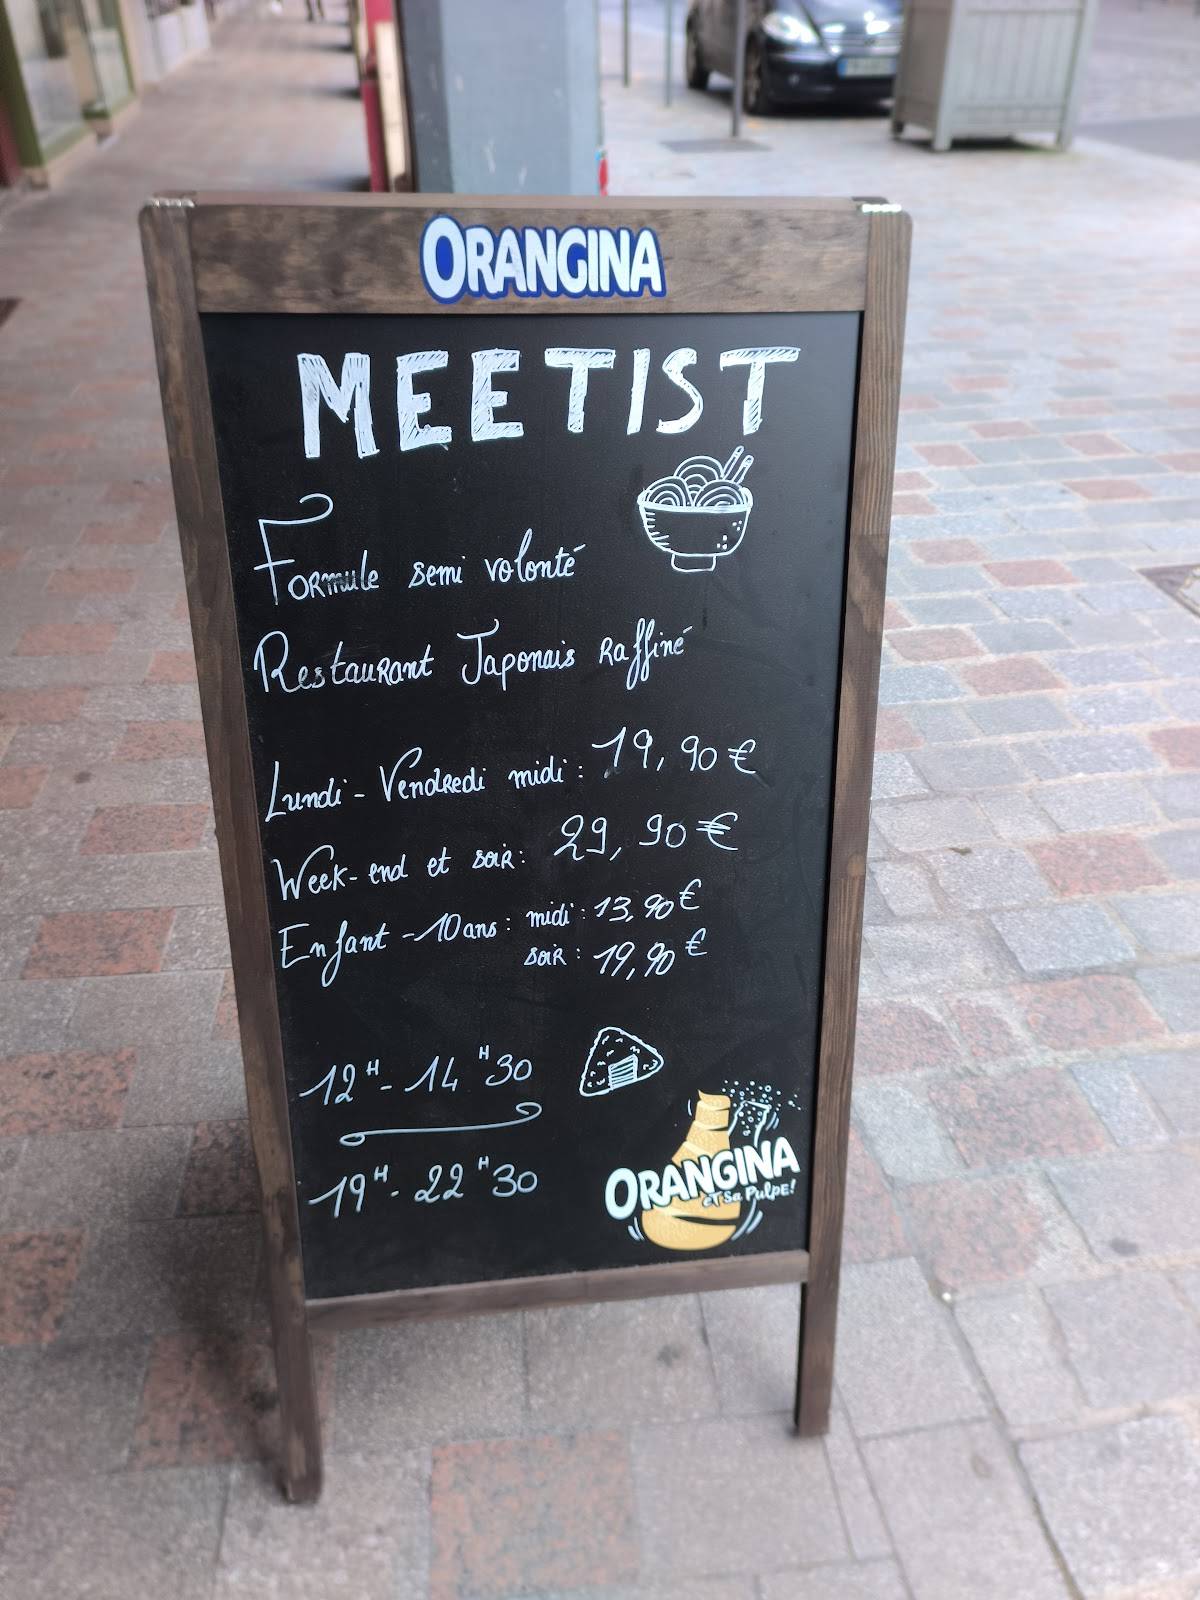 ORANGINA
MEETIST
Formule semi volonté
Restaurant Japonais Raffiné
Lundi - Vendredi midi : 19,90 €
Week-end et soir : 29,90 €
Enfant -10 ans : midi : 13,90 €
soir : 19,90 €
12H - 14H30
19H - 22H30
ORANGINA
et sa Pulpe!